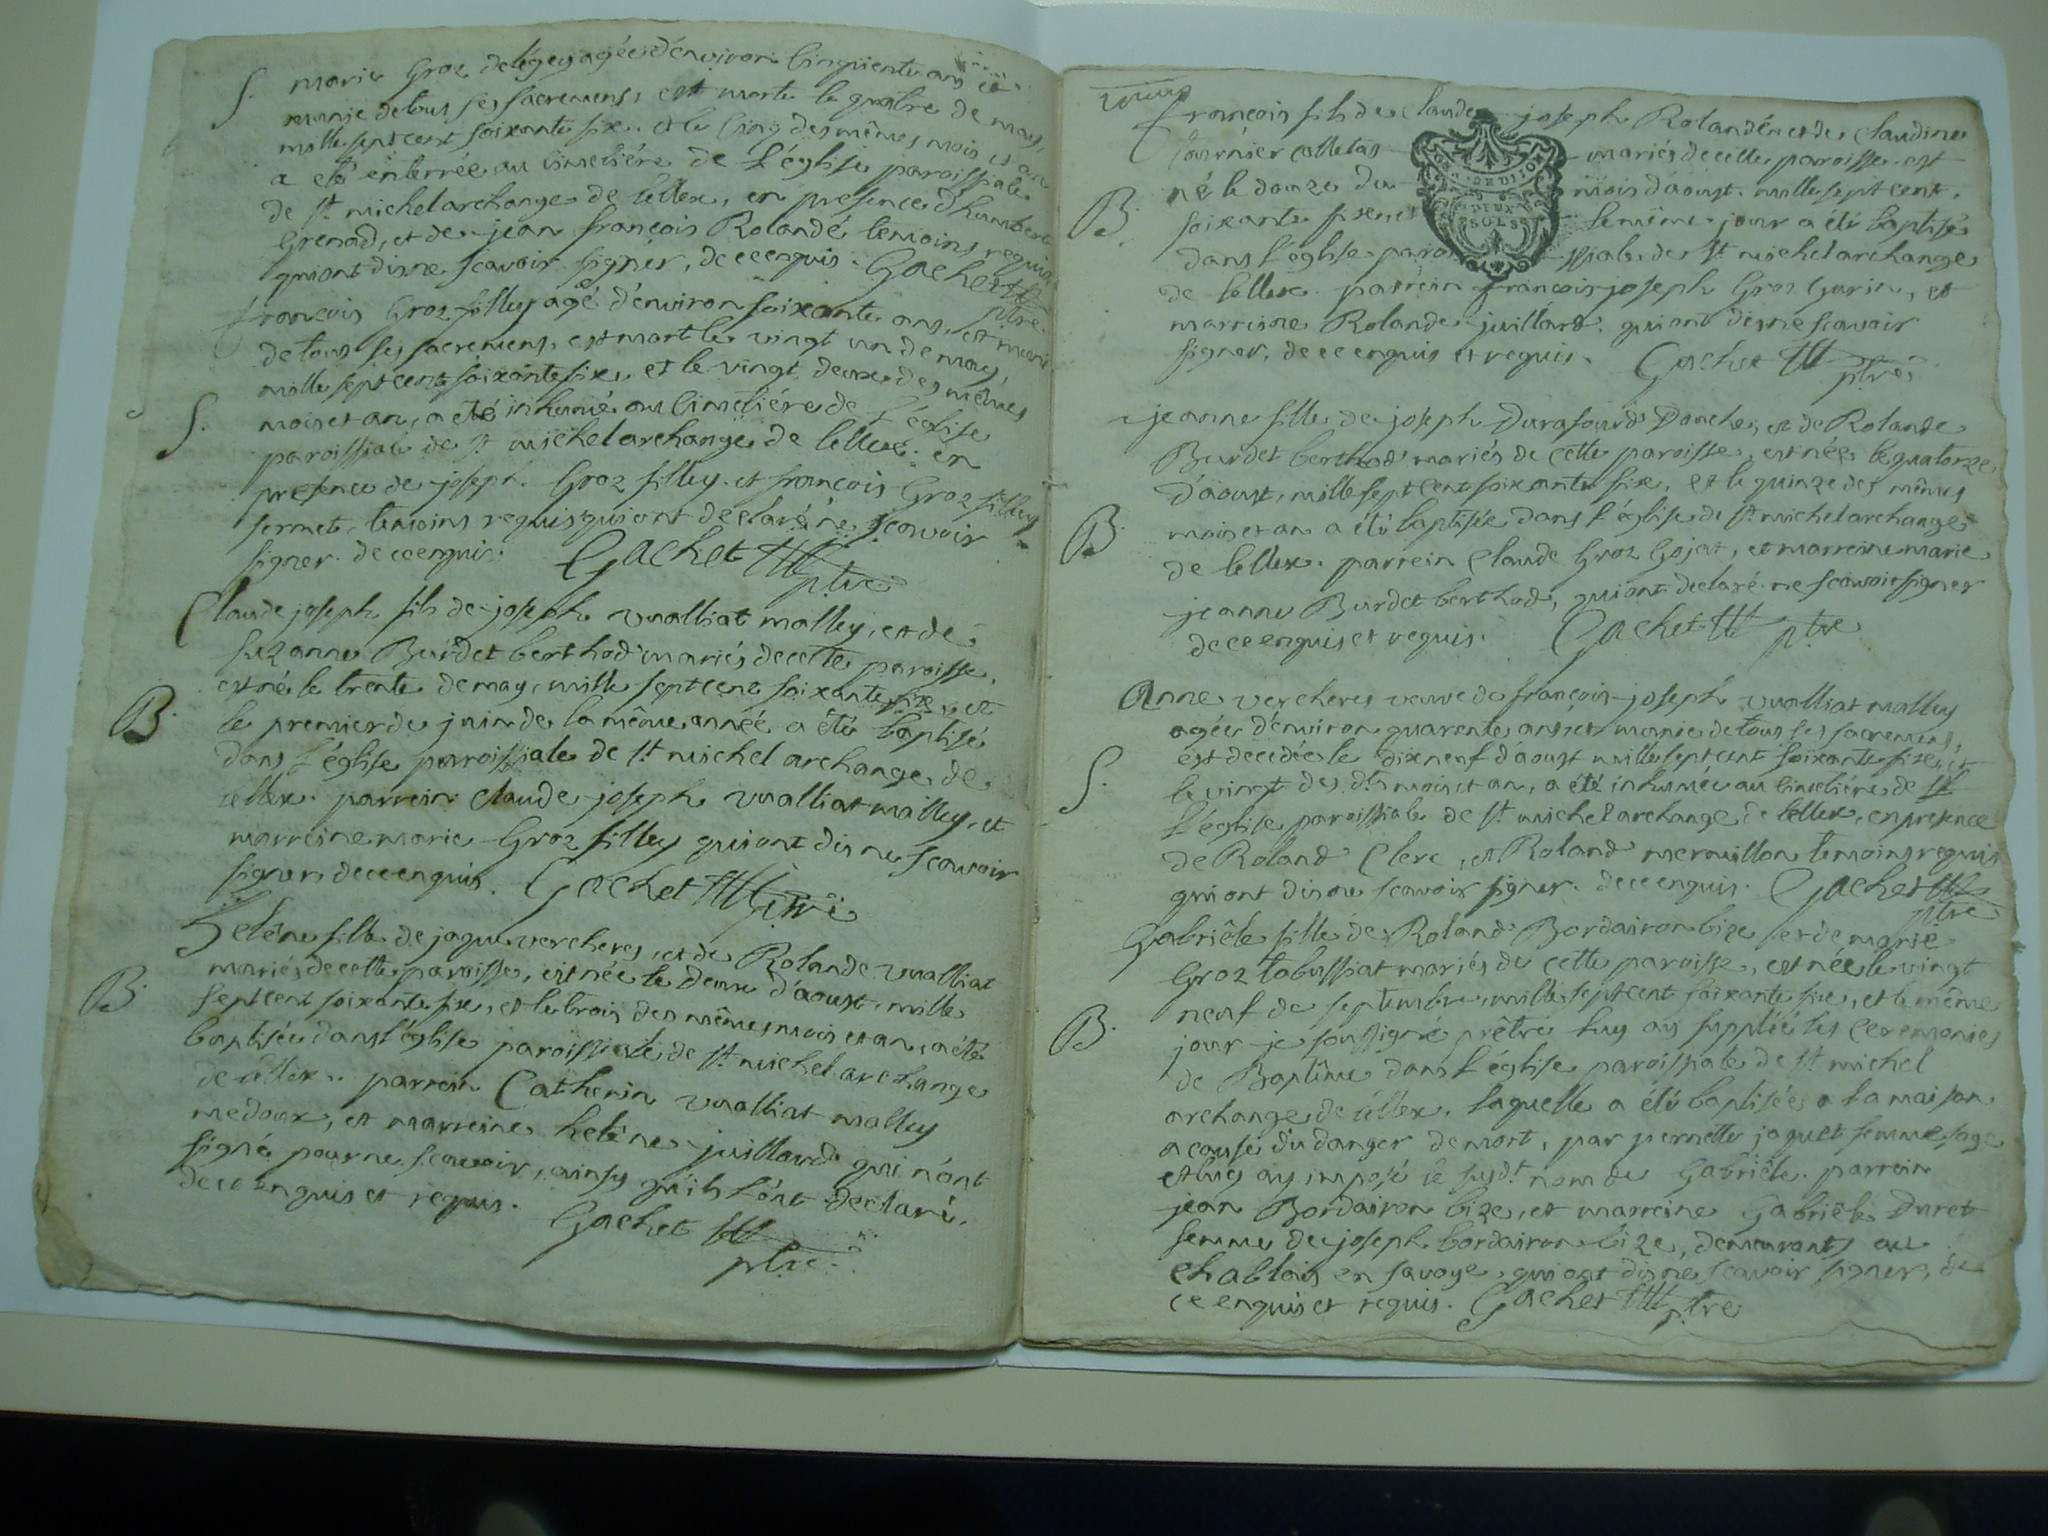 S. marie Groz delégey agée d'environ cinquente ans et
munie de tous ses sacremens, est morte le quatre de may,
mille sept cent soixante six. et le cinq des mêmes mois et an
a eté enterrée au cimetiére de l'église paroissiale
de St michel archange de lellex, en presence d'humbert
Grenad, et de jean françois Rolandé temoins requis
qui ont dis ne scavoir signer, de ce enquis. Gachet
ptre
françois Groz filley agé d'environ soixante ans, et muni
de tous ses sacremens, est mort le vingt un de may,
mille sept cent soixante six, et le vingt deux des mêmes
S. mois et an, a eté inhumé au cimetiére de l'église
paroissiale de St michel archange de lellex. en
presence de joseph Groz filley et françois Groz filley
fermet, temoins requis qui ont declaré ne scavoir
signer. de ce enquis. Gachet
ptre
Claude joseph fils de joseph vualliat malley, et de
suzanne Burdet berthod mariés de cette paroisse,
est né le trente de may, mille sept cent soixante six, et
B. le premier de juin de la même année a été baptisé
dans l'église paroissiale de St michel archange de
lellex. parrein Claude joseph vualliat malley, et
marreine marie Groz filley qui ont dis ne scavoir
signer, de ce enquis. Gachet ptre
helêne fille de jaque vercheres, et de Rolande vualliat
mariés de cette paroisse, est née le deux d'aoust, mille
B. sept cent soixante six, et le trois des mêmes mois et an, a été
baptisée dans l'église paroissiale de St michel archange
de lellex. parrein Catherin vualliat malley
medoux, et marreine helêne juilland qui n'ont
signé pour ne scavoir, ainsy qu'ils l'ont declaré.
de ce enquis et requis.
Gachet
ptre
françois fils de Claude joseph Rolandé et de Claudine
tournier colletas mariés de cette paroisse est
né le douze du mois d'aoust. mille sept cent.
B. soixante six et le même jour a été baptisé
dans l'église parois ssiale de St michel archange
de lellex. parrein françois joseph Groz Gurin, et
marreine Rolande juilland. qui ont dis ne scavoir
signer, de ce enquis et requis. Gachet
ptre
DIJON
DEUX
SOLS
jeanne fille de joseph Durafourd Donche, et de Rolande
Burdet berthod mariés de cette paroisse, est née le quatorze
d'aoust, mille sept cent soixante six, et le quinze des mêmes
B. mois et an a été baptisée dans l'église de St michel archange
de lellex. parrein Claude Groz Gojat, et marreine marie
jeanne Burdet berthod, qui ont declaré ne scavoir signer
de ce enquis et requis. Gachet ptre
Anne vercheres veuve de françois joseph vualliat malley
agée d'environ quarente ans et munie de tous ses sacremens,
est decedée le dixneuf d'aoust mille sept cent soixante six, et
S. le vingt des dts mois et an, a été inhumée au cimetiére de
l'église paroissiale de St michel archange de lellex, en presence
de Roland Clerc, et Roland mermillon temoins requis
qui ont dis ne scavoir signer. de ce enquis. Gachet
ptre
Gabriêle fille de Roland Bordairon bize et de marie
Groz tabussiat mariés de cette paroisse, est née le vingt
neuf de septembre, mille sept cent soixante six, et le même
B. jour je soussigné prêtre luy ay suppléé les ceremonies
de Baptême dans l'église paroissiale de St michel
archange de lellex. laquelle a été baptisée a la maison
a cause du danger de mort, par pernette jaquet femme sage
et luy ay imposé le susdt nom de Gabriêle. parrein
jean Bordairon bize, et marreine Gabriêle Duret
femme de joseph bordairon bize, demeurants au
chablais en savoye, qui ont dis ne scavoir signer, de
ce enquis et requis. Gachet ptre